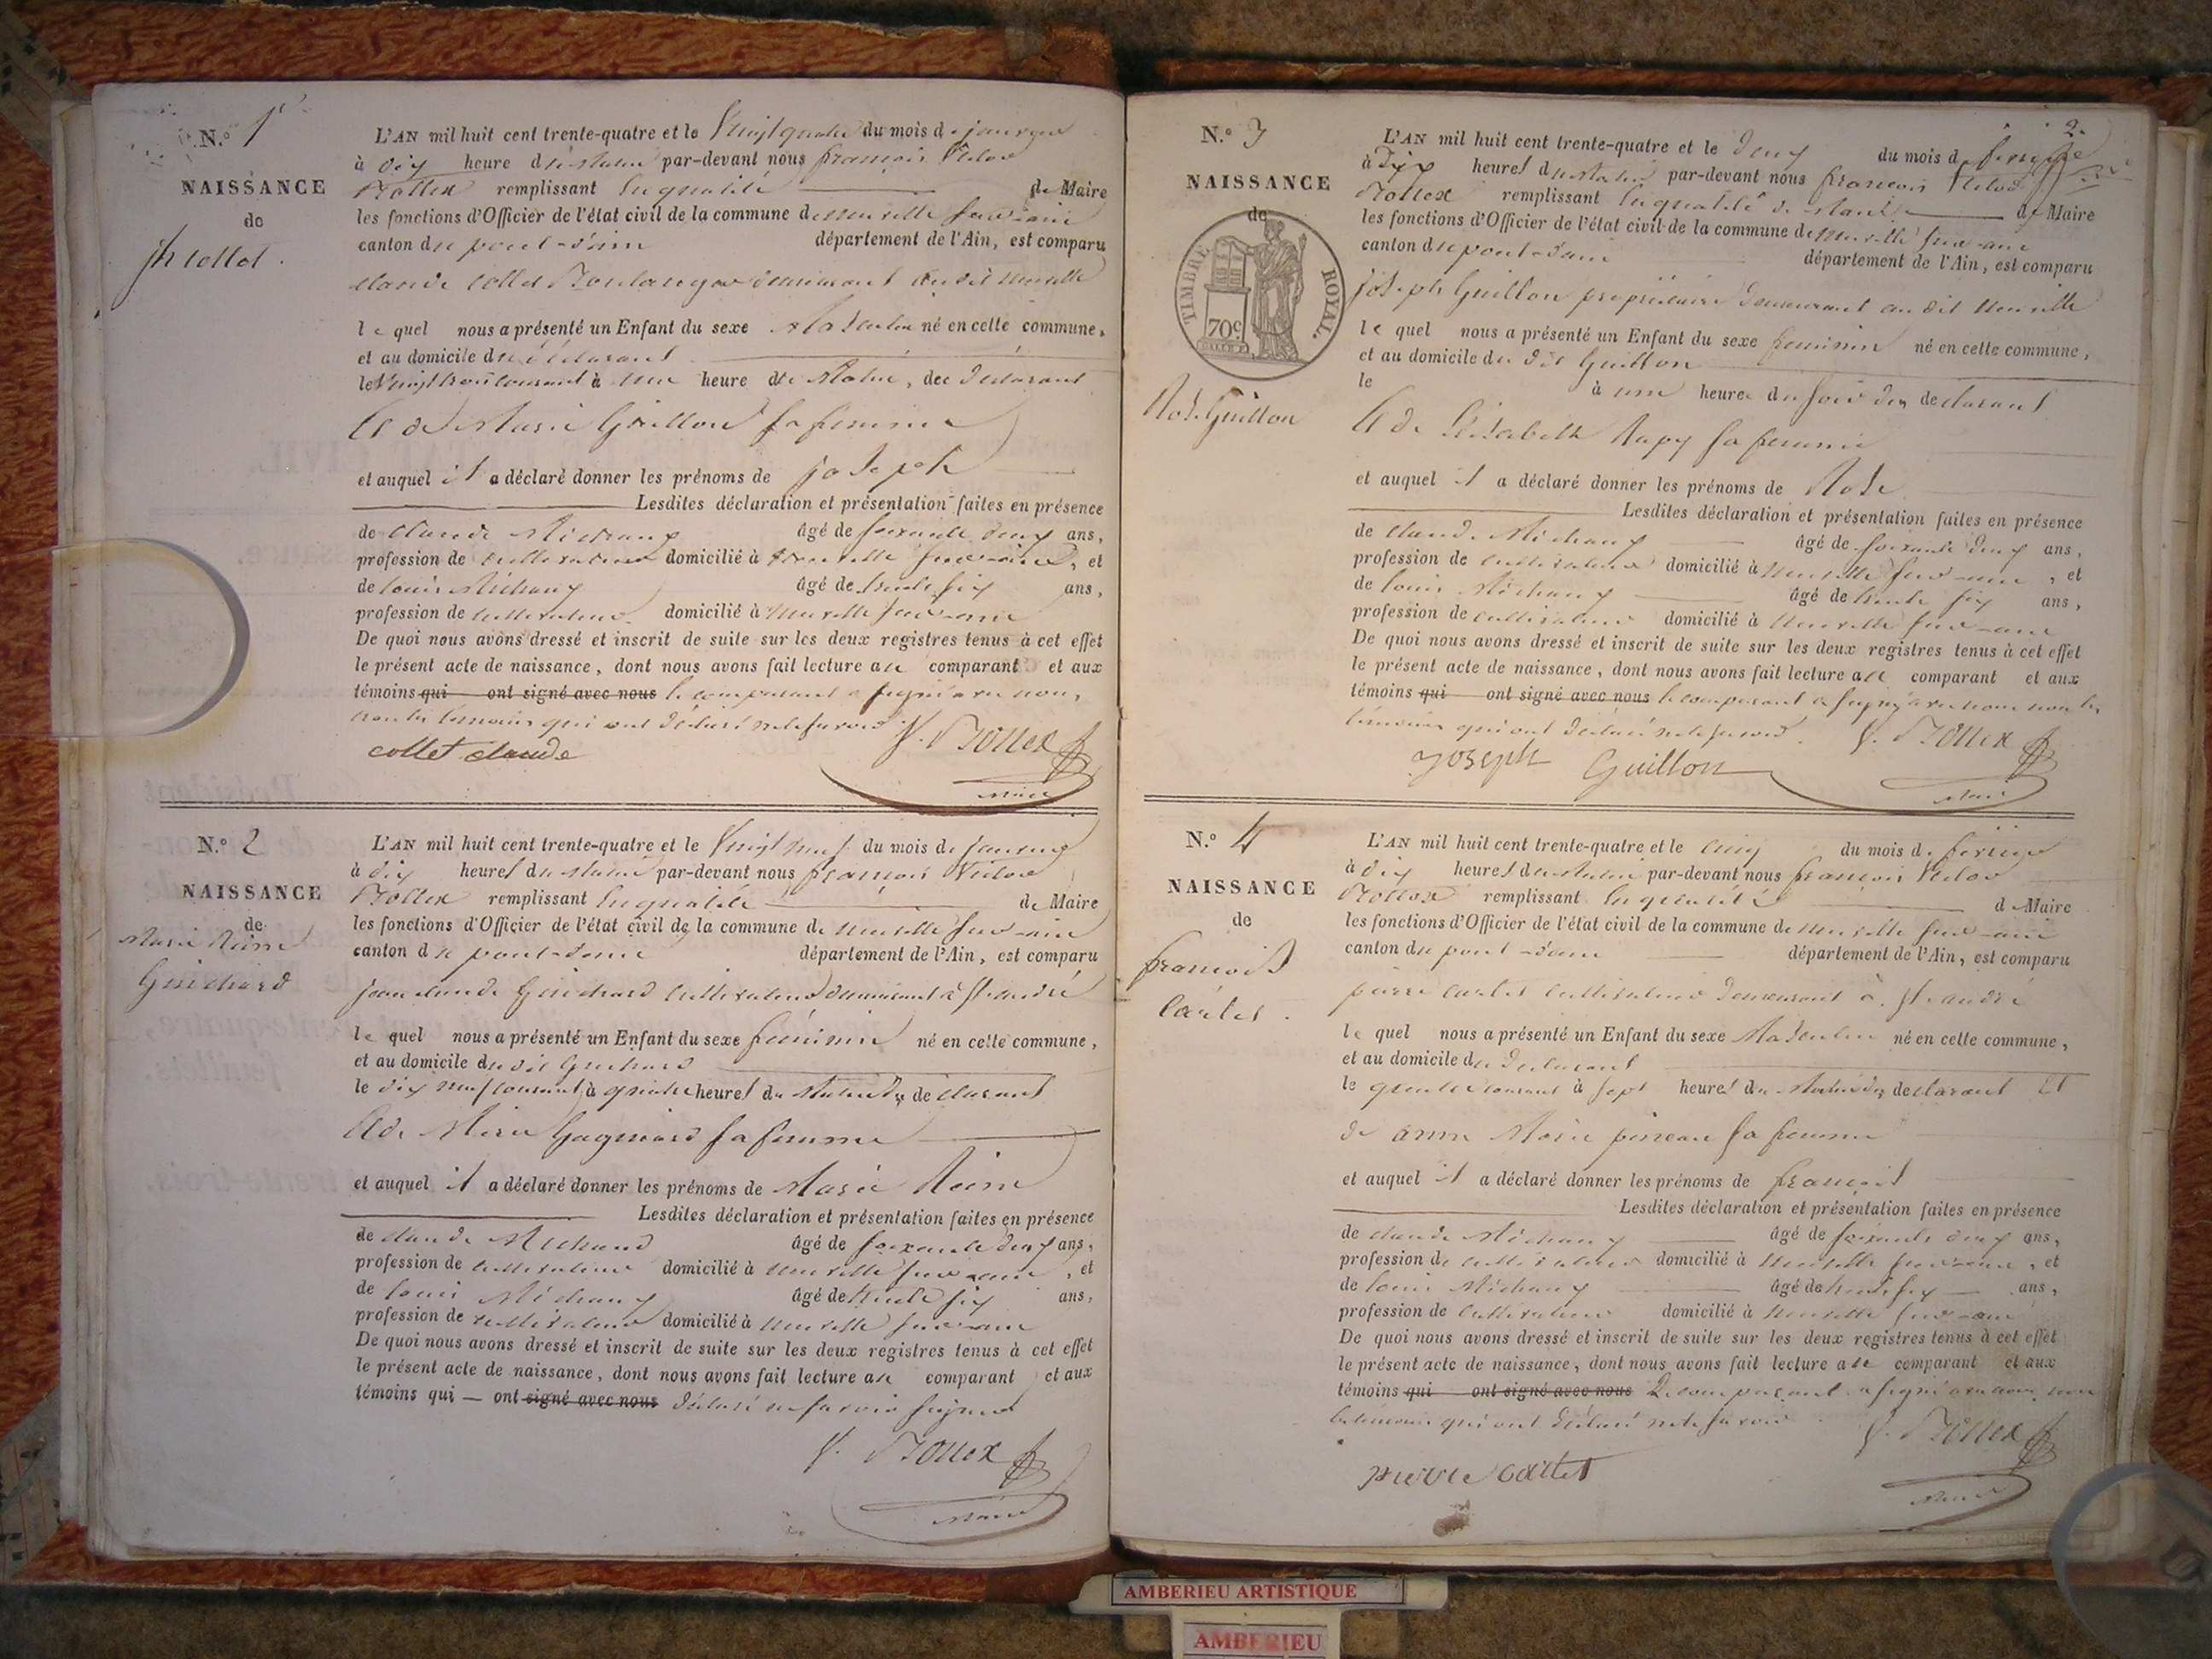 N.o 1er
NAISSANCE
de
jh collet.
L'AN mil huit cent trente-quatre et le Vingt quatre du mois de janvier
à dix heure du matin par-devant nous françois Victor
Bollex remplissant En qualité de Maire
les fonctions d'Officier de l'état civil de la commune de neuville sur-ain
canton de pont-d'ain département de l'Ain, est comparu
claude collet Boulanger demeurant au dit neuville
le quel nous a présenté un Enfant du sexe Masculin né en cette commune,
et au domicile du déclarant
le Vingt trois courant à une heure du Matin, de declarant
Et de Marie Guillon sa femme
et auquel il a déclaré donner les prénoms de joseph
Lesdites déclaration et présentation faites en présence
de claude Michaux âgé de soixante deux ans,
profession de cultivateur domicilié à neuville sur-ain, et
de louis Michaux âgé de trente six ans,
profession de cultivateur domicilié à neuville sur-ain
De quoi nous avons dressé et inscrit de suite sur les deux registres tenus à cet effet
le présent acte de naissance, dont nous avons fait lecture au comparant et aux
témoins qui ont signé avec nous le comparant a signé avec nous,
non les témoins qui ont déclaré ne le savoir
collet claude V. Bollex
Maire
N.o 2
NAISSANCE
de
Marie Reine
Guichard
L'AN mil huit cent trente-quatre et le Vingt neuf du mois de janvier
à dix heures du matin par-devant nous françois Victor
Bollex remplissant En qualité de Maire
les fonctions d'Officier de l'état civil de la commune de neuville sur-ain
canton de pont-d'ain département de l'Ain, est comparu
jean claude Guichard cultivateur demeurant à St andré
le quel nous a présenté un Enfant du sexe féminin né en cette commune,
et au domicile du dit Guichard
le dix neuf courant à quatre heures du Matin de declarant
Et de Marie Gagniard sa femme
et auquel il a déclaré donner les prénoms de Marie Reine
Lesdites déclaration et présentation faites en présence
de claude Michaud âgé de soixante deux ans,
profession de cultivateur domicilié à neuville sur-ain, et
de louis Michaux âgé de trente six ans,
profession de cultivateur domicilié à neuville sur-ain
De quoi nous avons dressé et inscrit de suite sur les deux registres tenus à cet effet
le présent acte de naissance, dont nous avons fait lecture au comparant et aux
témoins qui — ont signé avec nous déclaré ne savoir signer
V. Bollex
Maire
2.
N.o 3
NAISSANCE
de
TIMBRE ROYAL.
70c
Rose Guillon
L'AN mil huit cent trente-quatre et le deux du mois de février
à Dix heures du matin par-devant nous françois Victor
Bollex remplissant En qualité de Maire de Maire
les fonctions d'Officier de l'état civil de la commune de neuville sur-ain
canton de pont-d'ain département de l'Ain, est comparu
joseph Guillon propriétaire demeurant au dit neuville
le quel nous a présenté un Enfant du sexe feminin né en cette commune,
et au domicile du dit Guillon
le à une heure du soir de declarant
Et de Elisabeth sa femme
et auquel il a déclaré donner les prénoms de Rose
Lesdites déclaration et présentation faites en présence
de claude Michaux âgé de soixante deux ans,
profession de cultivateur domicilié à neuville sur-ain, et
de louis Michaux âgé de trente six ans,
profession de cultivateur domicilié à neuville sur-ain
De quoi nous avons dressé et inscrit de suite sur les deux registres tenus à cet effet
le présent acte de naissance, dont nous avons fait lecture au comparant et aux
témoins qui ont signé avec nous le comparant a signé avec nous non les
témoins qui ont déclaré ne le savoir. V. Bollex
joseph Guillon Maire
N.o 4
NAISSANCE
de
françois
Cartet.
L'AN mil huit cent trente-quatre et le cinq du mois de février
à dix heures du matin par-devant nous françois Victor
Bollex remplissant En qualité de Maire
les fonctions d'Officier de l'état civil de la commune de neuville sur-ain
canton de pont-d'ain département de l'Ain, est comparu
pierre cartet cultivateur demeurant à St andré
le quel nous a présenté un Enfant du sexe Masculin né en cette commune,
et au domicile du declarant
le quatre courant à sept heures du Matin de declarant Et
de anne Marie sa femme
et auquel il a déclaré donner les prénoms de françois
Lesdites déclaration et présentation faites en présence
de claude Michaux âgé de soixante deux ans,
profession de cultivateur domicilié à neuville sur-ain, et
de louis Michaux âgé de trente six ans,
profession de cultivateur domicilié à neuville sur-ain
De quoi nous avons dressé et inscrit de suite sur les deux registres tenus à cet effet
le présent acte de naissance, dont nous avons fait lecture au comparant et aux
témoins qui ont signé avec nous Le comparant a signé avec nous non
les témoins qui ont déclaré ne le savoir V. Bollex
pierre cartet Maire
AMBERIEU ARTISTIQUE
AMBERIEU